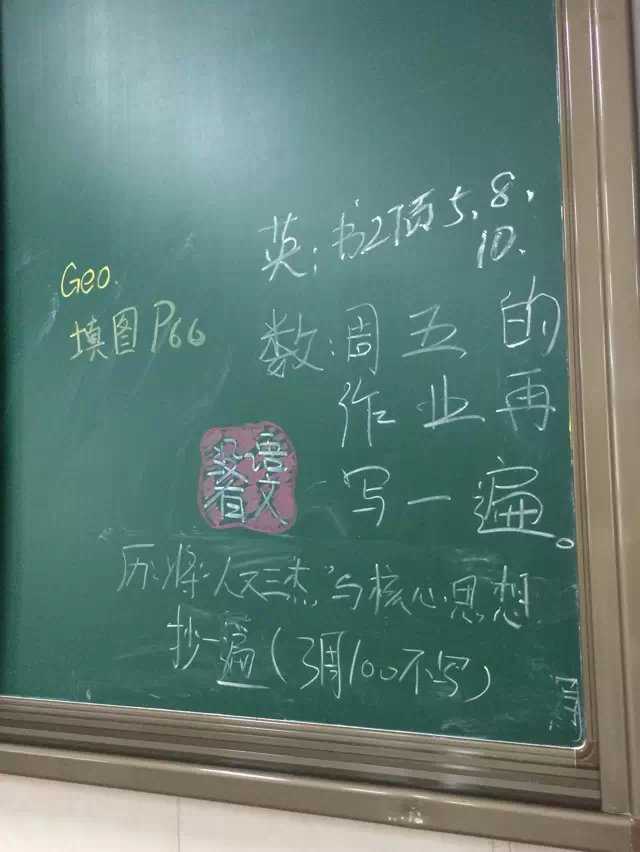 英:书2顶5.8.
10.
Geo.
填图P66
数:周五的
作业再
写一遍。
语文
没有
历:将"人文三杰"与核心思想
抄一遍(3周100不写)